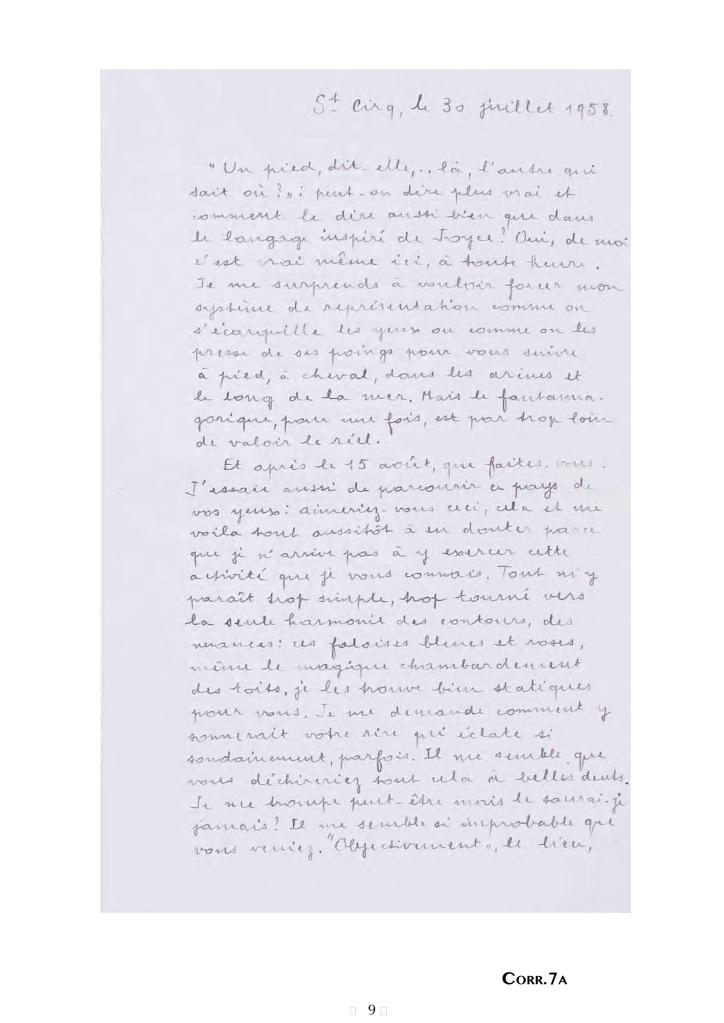 St Cirq, le 30 juillet 1958.
" Un pied, dit-elle,.. là, l'autre qui
sait où ? „ : peut-on dire plus vrai et
comment le dire aussi bien que dans
le langage inspiré de Joyce ? Oui, de moi
c'est vrai même ici, à toute heure.
Je me surprends à vouloir forcer mon
système de représentation comme on
s'écarquille les yeux ou comme on les
presse de ses poings pour vous suivre
à pied, à cheval, dans les arènes et
le long de la mer. Mais le fantasma-
gorique, pour une fois, est par trop loin
de valoir le réel.
Et après le 15 août, que faites-vous ?
J'essaie aussi de parcourir ce pays de
vos yeux : aimeriez-vous ceci, cela et me
voila tout aussitôt à en douter parce
que je n'arrive pas à y exercer cette
activité que je vous connais. Tout m'y
paraît trop simple, trop tourné vers
la seule harmonie des contours, des
nuances : ces falaises bleues et roses,
même le magique chambardement
des toits, je les trouve bien statiques
pour vous. Je me demande comment y
sonnerait votre rire qui éclate si
soudainement, parfois. Il me semble que
vous déchireriez tout cela à belles dents.
Je me trompe peut-être mais le saurai-je
jamais ? Il me semble si improbable que
vous veniez. "Objectivement„, le lieu,
CORR.7A
9